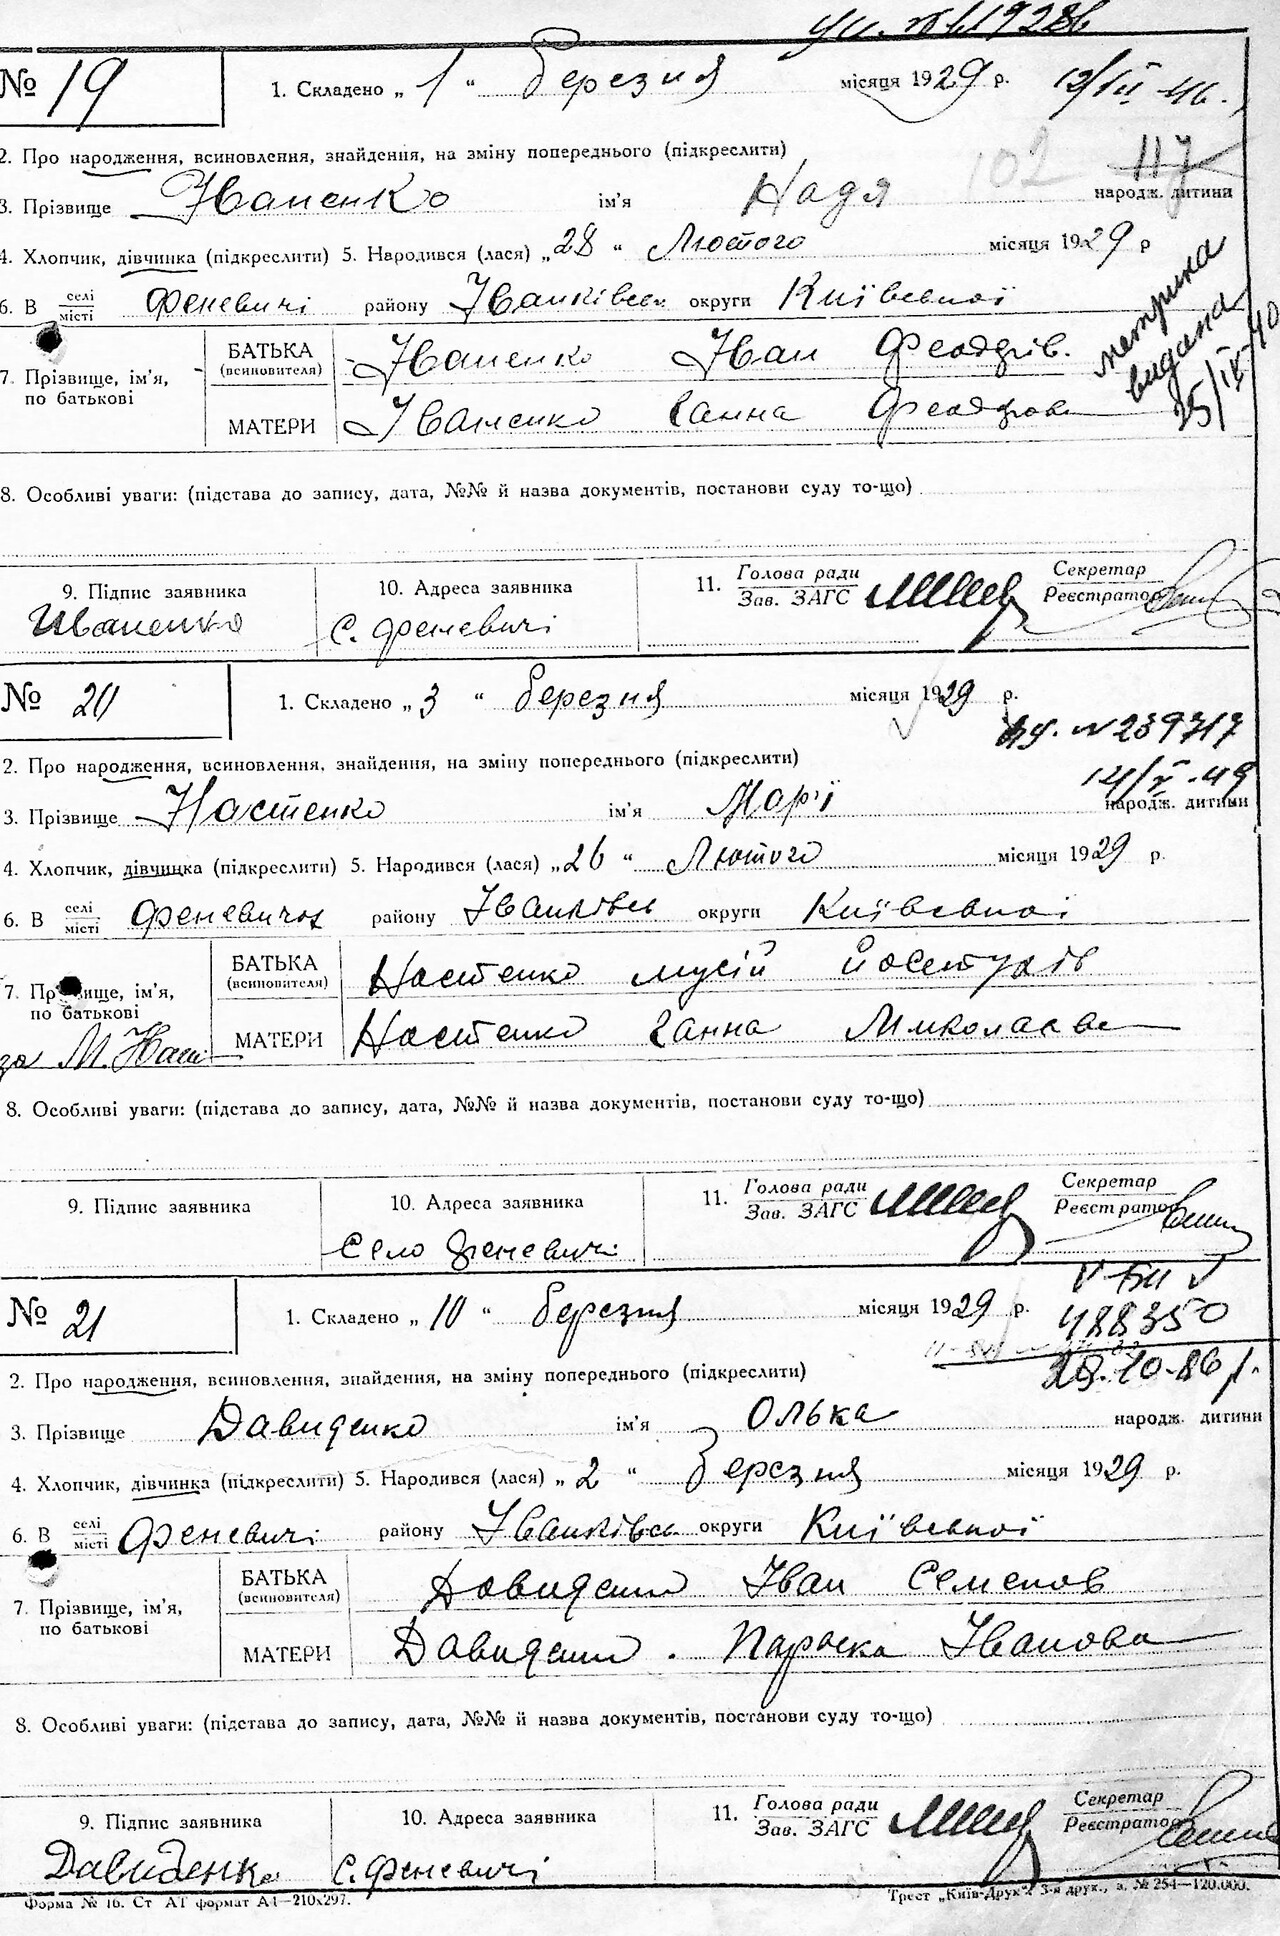 № 19
1. Складено „ 1 “ Березня місяця 1929 р.
117
102
2. Про народження, всиновлення, знайдення, на зміну попереднього (підкреслити)
3. Прізвище Іваненко ім'я Надя народж. дитини
4. Хлопчик, дівчинка (підкреслити) 5. Народився (лася) „ 28 “ Лютого місяця 1929 р
6. В селі/місті Феневичі району Іванківськ округи Київської
метрика видана 25/IV-40
7. Прізвище, ім'я, по батькові
БАТЬКА (всиновителя) Іваненко Іван Феодрів.
МАТЕРИ Іваненко Ганна Феодрова
8. Особливі уваги: (підстава до запису, дата, №№ й назва документів, постанови суду то-що)
9. Підпис заявника 10. Адреса заявника 11. Голова ради/Зав. ЗАГС Секретар/Реєстратор
Іваненко с. Феневичі
№ 20
1. Складено „ 3 “ Березня місяця 1929 р.
№ 239717
14/V-49
2. Про народження, всиновлення, знайдення, на зміну попереднього (підкреслити)
3. Прізвище Настенко ім'я Марії народж. дитини
4. Хлопчик, дівчинка (підкреслити) 5. Народився (лася) „ 26 “ Лютого місяця 1929 р.
6. В селі/місті Феневичах району Іванківськ округи Київської
7. Прізвище, ім'я, по батькові
БАТЬКА (всиновителя) Настенко Мусій
МАТЕРИ Настенко Ганна Миколаєва
за М. Наст
8. Особливі уваги: (підстава до запису, дата, №№ й назва документів, постанови суду то-що)
9. Підпис заявника 10. Адреса заявника 11. Голова ради/Зав. ЗАГС Секретар/Реєстратор
Село Феневичі
№ 21
1. Складено „ 10 “ Березня місяця 1929 р.
V-БК
488350
28.10-86 р.
2. Про народження, всиновлення, знайдення, на зміну попереднього (підкреслити)
3. Прізвище Давиденко ім'я Олька народж. дитини
4. Хлопчик, дівчинка (підкреслити) 5. Народився (лася) „ 2 “ Березня місяця 1929 р.
6. В селі/місті Феневичі району Іванківськ округи Київської
7. Прізвище, ім'я, по батькові
БАТЬКА (всиновителя) Давиденко Іван Семенов
МАТЕРИ Давиденко Параска Іванова
8. Особливі уваги: (підстава до запису, дата, №№ й назва документів, постанови суду то-що)
9. Підпис заявника 10. Адреса заявника 11. Голова ради/Зав. ЗАГС Секретар/Реєстратор
Давиденко с. Феневичі
Форма № 16. Ст АТ формат А4—210х297.
Трест „Київ-Друк“ 3-я друк., з. № 254—120.000.